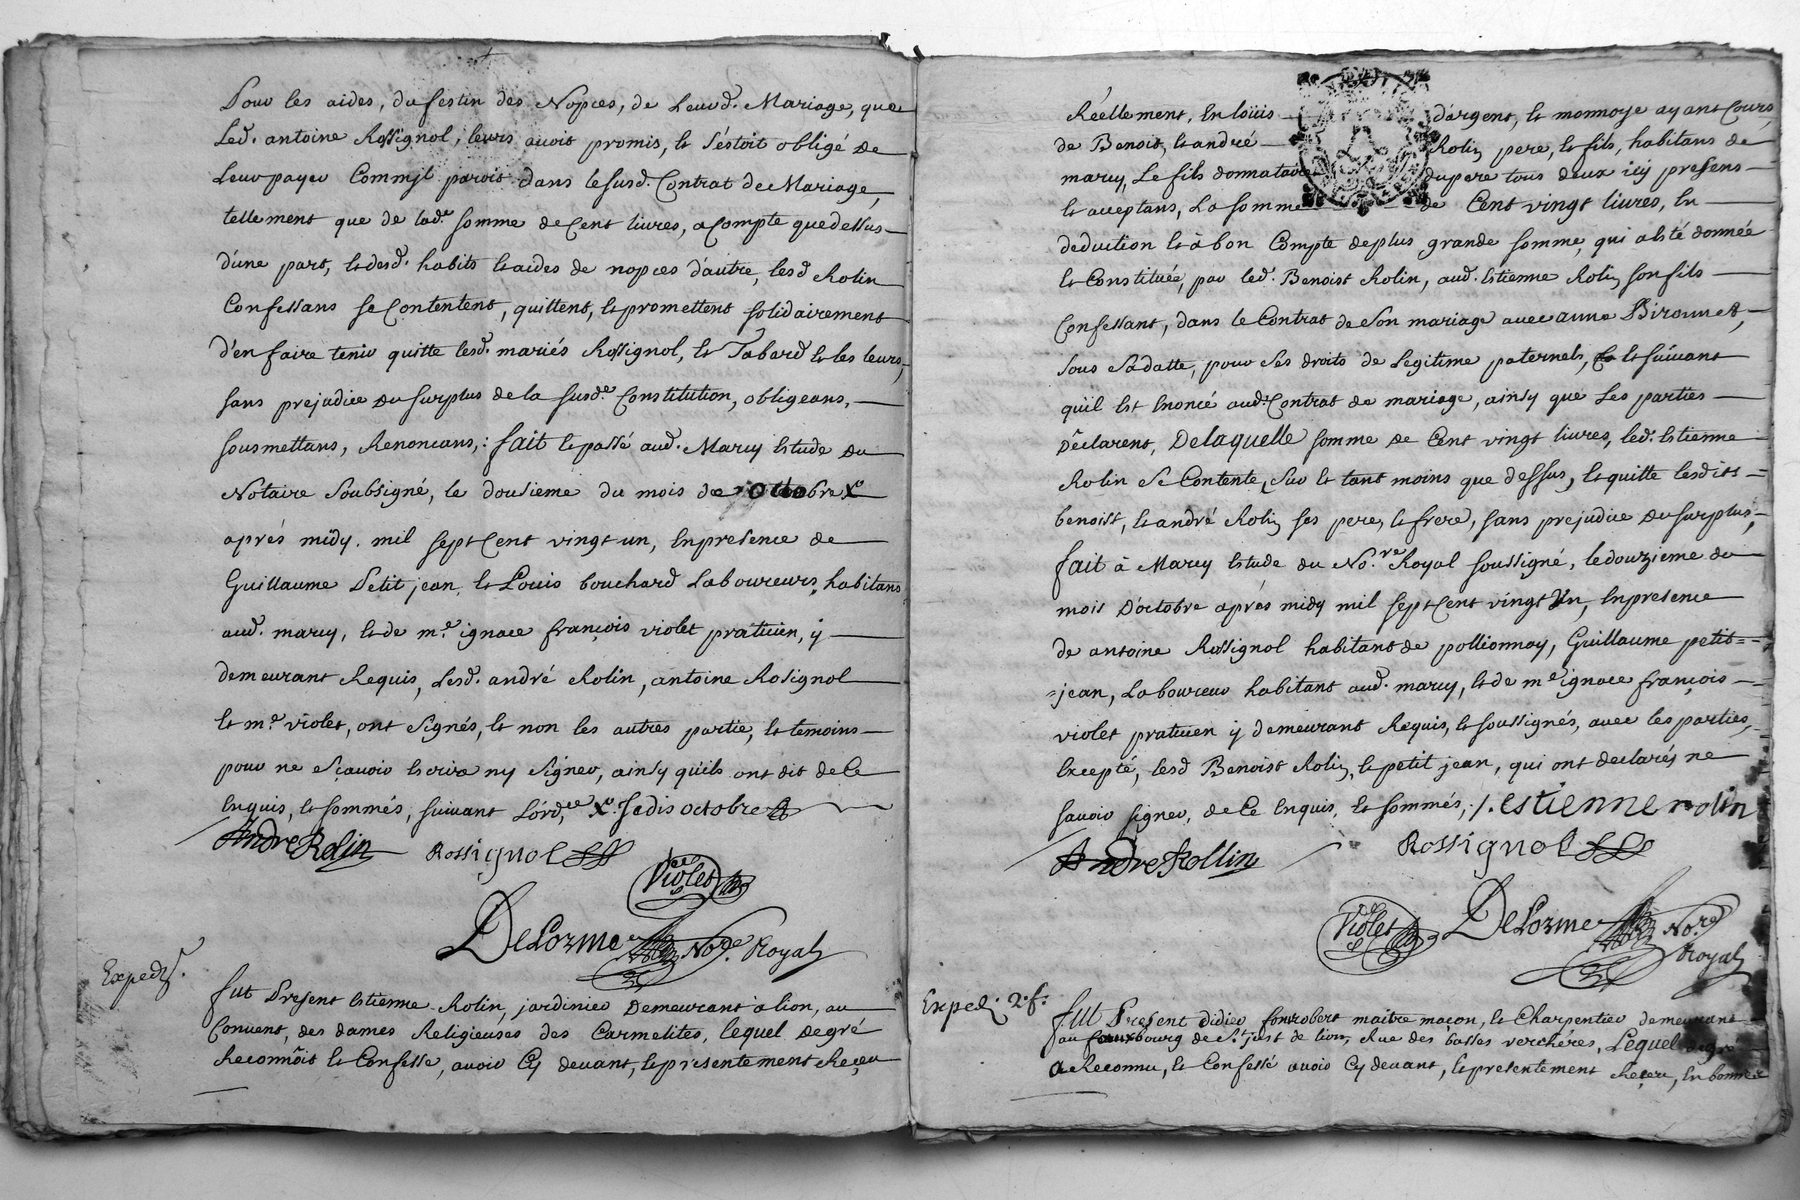 Pour les aides, du festin des Nopces, de Leurd. Mariage, que
Led. antoine Rossignol, leurs avoit promis, et s'éstoit obligé de
Leur payer Comm'jl paroit dans lesusd. Contrat de Mariage,
tellement que de lad.e somme de Cent livres, a Compte que dessus
d'une part, et desd. habits et aides de nopces d'autre, lesd Rolin
Confessans se Contentent, quittent, et promettent solidairement
d'en faire tenir quitte lesd. mariés Rossignol, et Tabard et les leurs,
sans prejudice du surplus de la susd.e Constitution, obligeans,
sousmettans, Renoncans,: fait et passé aud. Marcy Estude du
Notaire Soubsigné, le dousieme du mois de octobre X.e
aprés midy. mil sept Cent vingt un, En presence de
Guillaume Petit jean, et Louis bouchard Laboureurs, habitans
aud. marcy, et de m.e ignace françois violet praticien, ÿ
demeurant Requis, Lesd. andré Rolin, antoine Rosignol
et m.e violet, ont signés, et non les autres partie, et temoins
pour ne sçavoir Escrire ny signer, ainsy qu'ils ont dit de Ce
Enquis, et sommés, suivant L'ord.ce X.e Jadis octobre
André Rolin Rossignol
Violet
DeLorme No.re Royal
Exped.
fut Present Estienne Rolin, jardinier Demeurant à lion, au
Convent, des dames Religieuses des Carmelites, lequel de gré
Reconnoit et Confesse, avoir Cy devant, et presentement Receu
Réellement, En loüis d'argent, et monnoye ayant Cours,
de Benoist, et andré Rolin pere, et fils, habitans de
marcy, Le fils donnataire du pere tous deux icy presens
et acceptans, La somme de Cent vingt livres, En
deduction et à bon Compte de plus grande somme, qui a esté donnée
et Constituée, par led. Benoist Rolin, aud. Estienne Rolin son fils
Confessant, dans le Contrat de son mariage avec anne Bironnet,
sous sa datte, pour ses droits de Legitime paternels, et suivant
qu'il Est Enoncé aud. Contrat de mariage, ainsy que Les parties
Declarent, De laquelle somme de Cent vingt livres, led. Estienne
Rolin se Contente, sur et tant moins que dessus, et quitte lesdits
benoist, et andré Rolin ses pere, et frere, sans prejudice du surplus,
fait à Marcy Estude du No.re Royal soussigné, le douzieme du
mois d'octobre aprés midy mil sept Cent vingt Un, En presence
de antoine Rossignol habitant de pollionnay, Guillaume petit=
=jean, Laboureur habitant aud. marcy, et de m.e ignace françois
violet praticien ÿ demeurant Requis, et soussignés, avec les parties,
Excepté, lesd Benoist Rolin, et petit jean, qui ont declarés ne
savoir signer, de Ce Enquis, et sommés,:/. estienne rolin
André Rollin Rossignol
Violet DeLorme No.re
Royal
Exped. 2.f.
fut Present Didier fonrobert maitre macon, et Charpentier demeurant
au fauxbourg de S.t just de lion, Rue des basses verchéres, Lequel de gré
a Reconnu, et Confessé avoir Cy devant, et presentement Receu, En bonnes